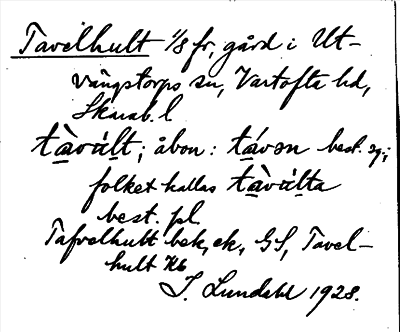 Tavelhult 1/8 fr, gård i Ut-
vängstorps sn, Vartofta hd,
Skarab. l
tàvúlt; åbon: távən best. sg.;
folket kallas tàvúlta
best. pl
Tafvelhult bek, ek, GS, Tavel-
hult Kb
I. Lundahl 1928.